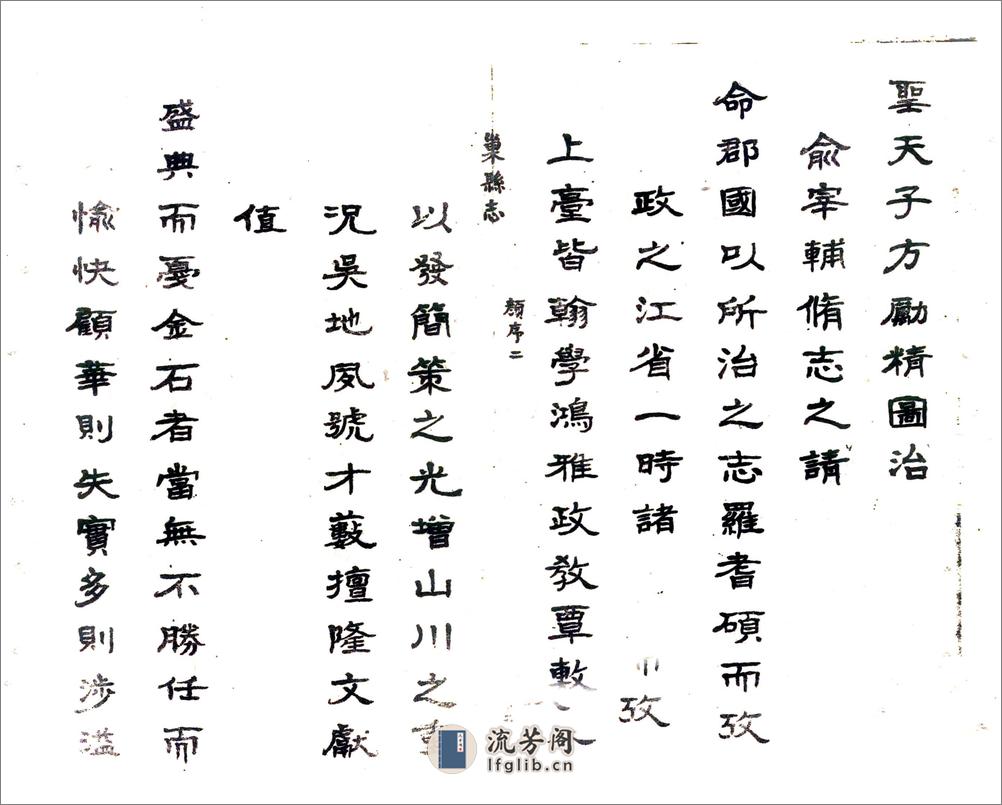 聖天子方勵精圖治
俞宰輔脩志之請
命郡國以所治之志羅耆碩而攷
政之江省一時諸 攷
上臺皆翰學鴻雅政教覃敷
巢縣志
顏序二
以發簡策之光增山川之重
況吳地夙號才藪擅隆文獻
值
盛典而憂金石者當無不勝任而
愉快顧華則失實多則涉溢
流芳阁
lfglib.cn